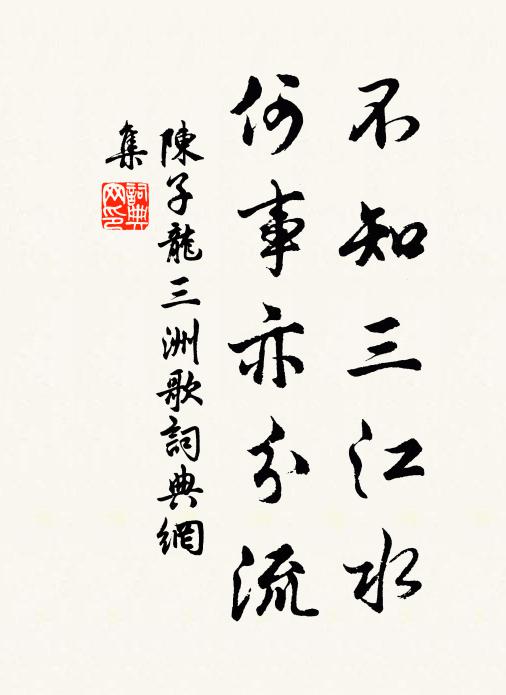 不知三江水
何事亦分流
陳子龍三洲歌詞典網
集
詞典网印